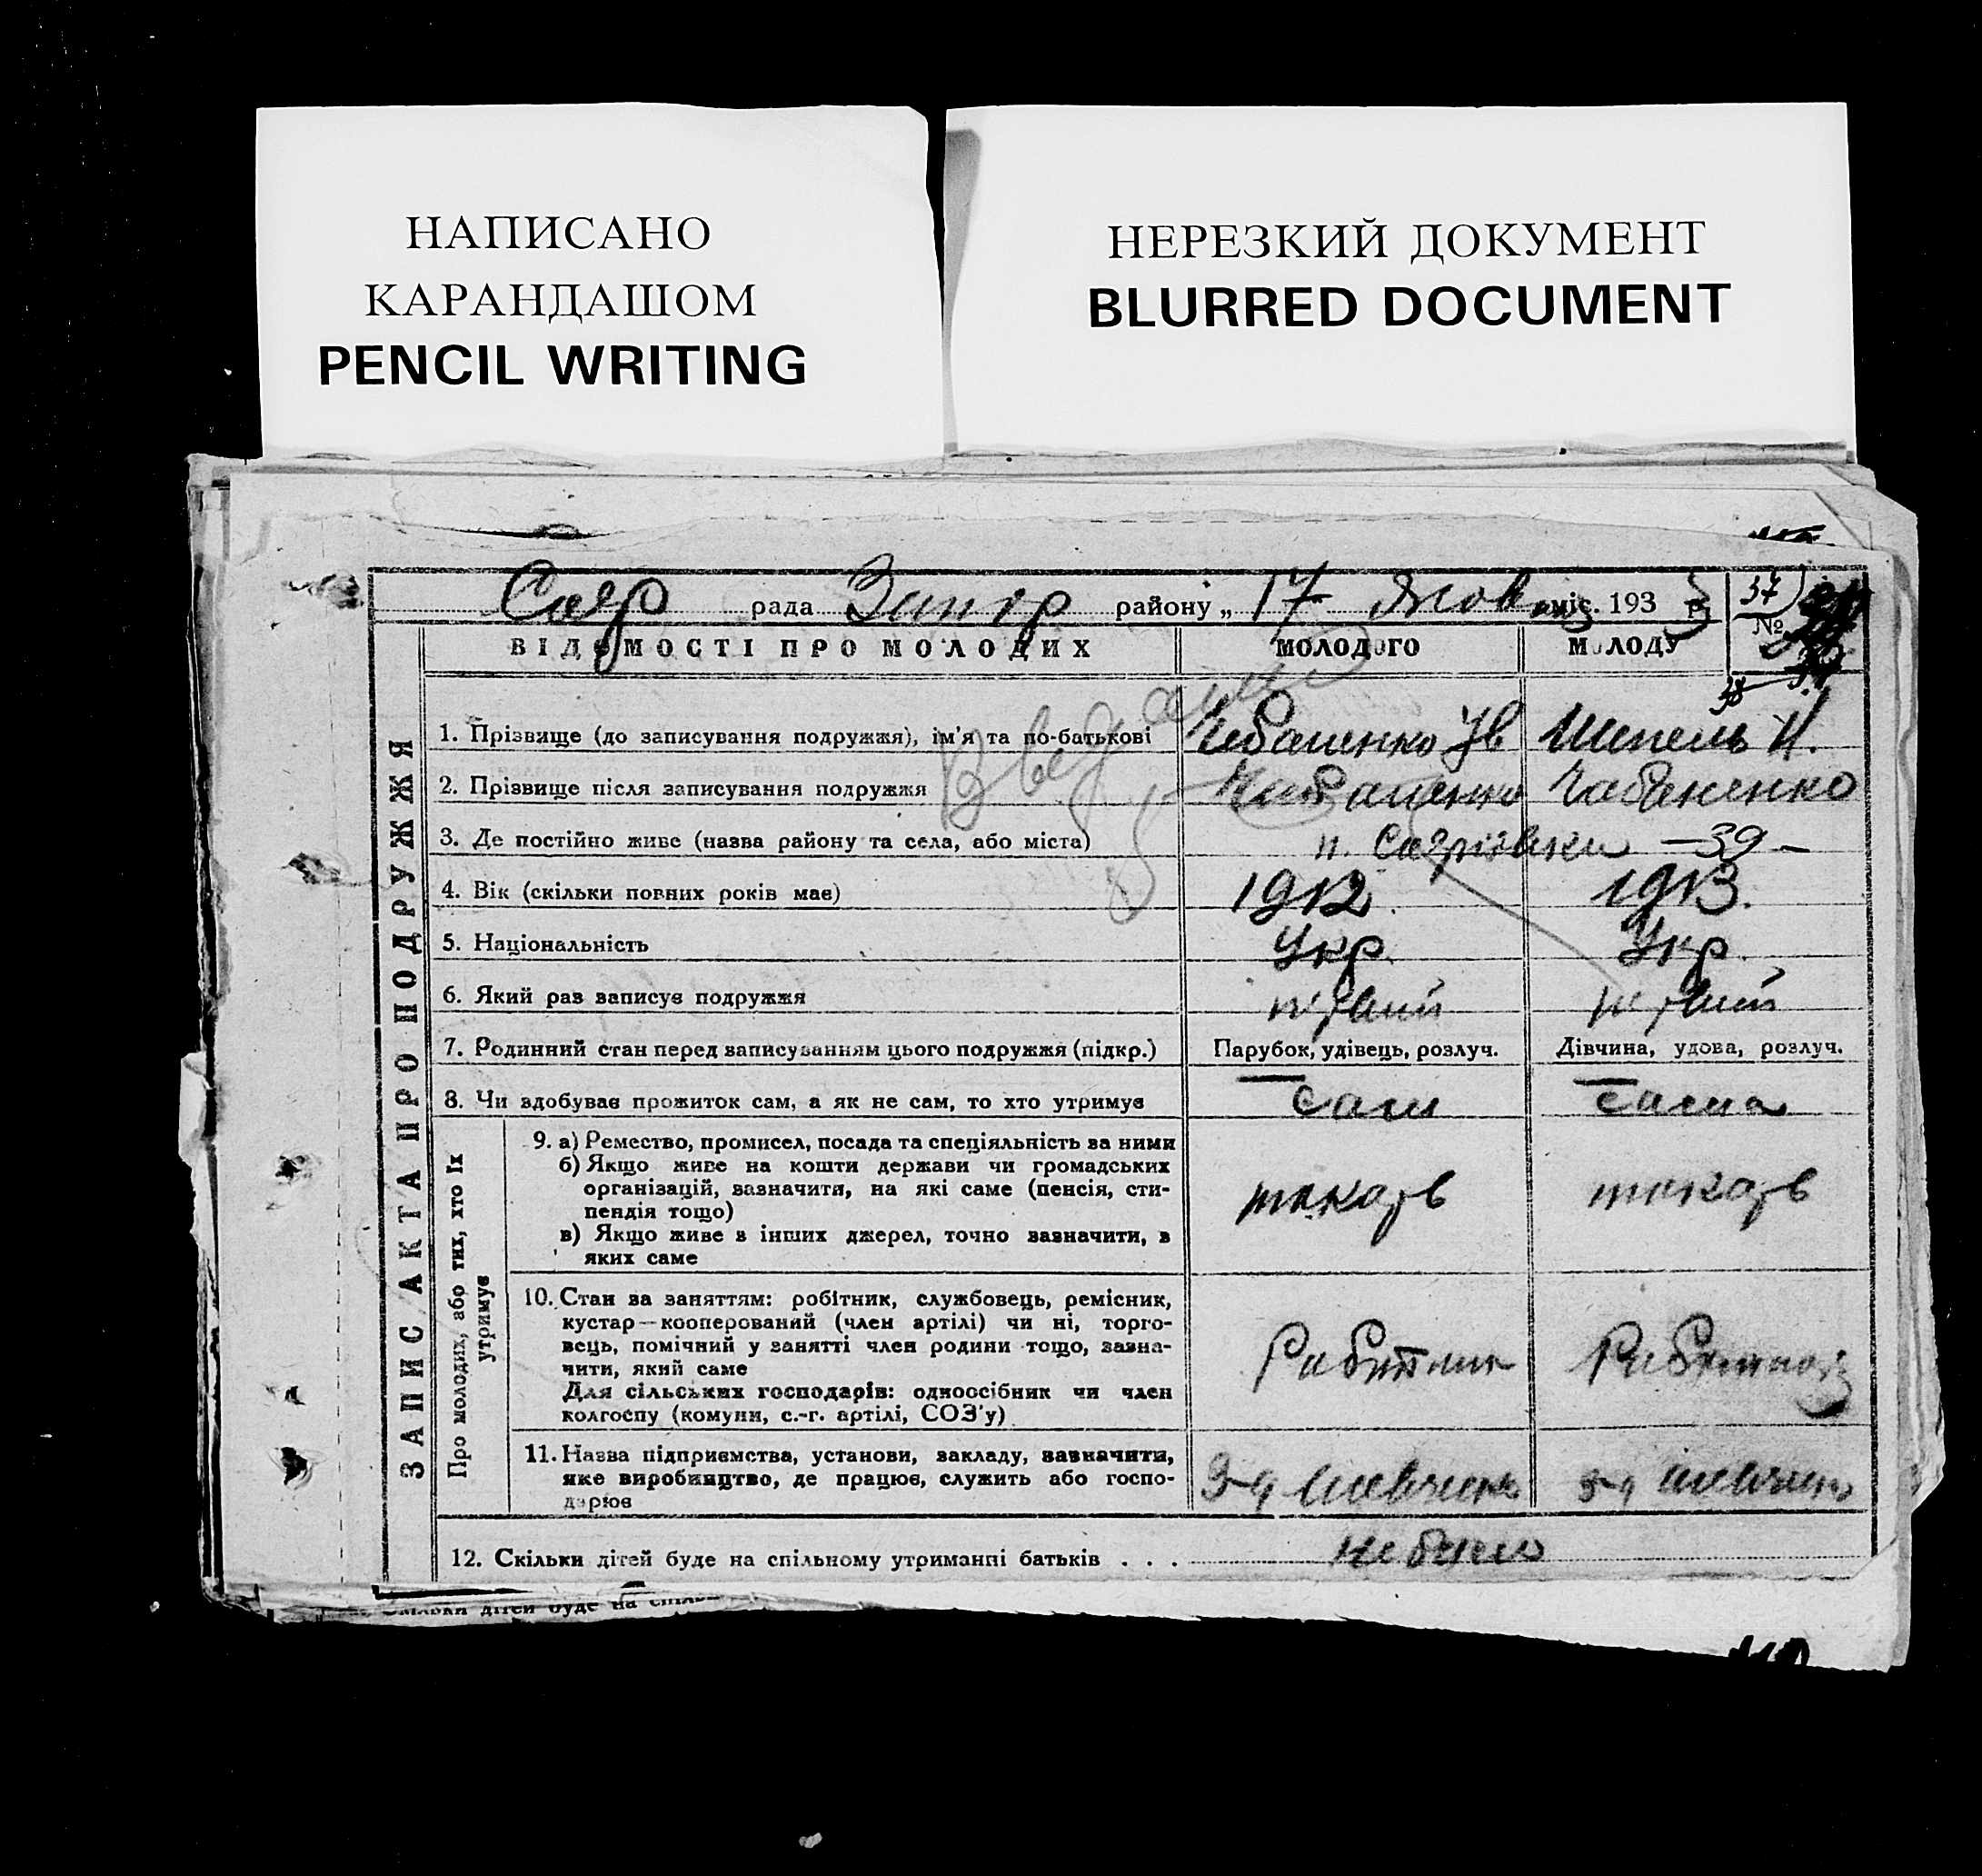 НАПИСАНО
КАРАНДАШОМ
PENCIL WRITING
НЕРЕЗКИЙ ДОКУМЕНТ
BLURRED DOCUMENT
рада Запор району „ 17 Жов міс. 193 3 р. 37
№
ВІДОМОСТІ ПРО МОЛОДИХ МОЛОДОГО МОЛОДУ
ЗАПИС АКТА ПРО ПОДРУЖЖЯ
1. Прізвище (до записування подружжя), ім'я та по-батькові Чабаненко Ів Шепель Н.
2. Прізвище після записування подружжя Чабаненко Чабаненко
3. Де постійно живе (назва району та села, або міста) – 39 –
4. Вік (скільки повних років має) 1912. 1913.
5. Національність Укр. Укр.
6. Який раз записує подружжя первий первий
7. Родинний стан перед записуванням цього подружжя (підкр.) Парубок, удівець, розлуч. Дівчина, удова, розлуч.
8. Чи здобуває прожиток сам, а як не сам, то хто утримує Сам Сама
Про молодих, або тих, хто їх утримує
9. а) Ремество, промисел, посада та спеціяльність за ними
б) Якщо живе на кошти держави чи громадських
організацій, зазначити, на які саме (пенсія, сти-
пендія тощо)
в) Якщо живе з інших джерел, точно зазначити, з
яких саме
токарь токарь
10. Стан за заняттям: робітник, службовець, ремісник,
кустар—кооперований (член артілі) чи ні, торго-
вець, помічний у занятті член родини тощо, зазна-
чити, який саме
Для сільських господарів: одноосібник чи член
колгоспу (комуни, с.-г. артілі, СОЗ'у)
11. Назва підприємства, установи, закладу, зазначити,
яке виробництво, де працює, служить або госпо-
дарює
12. Скільки дітей буде на спільному утриманні батьків . . .